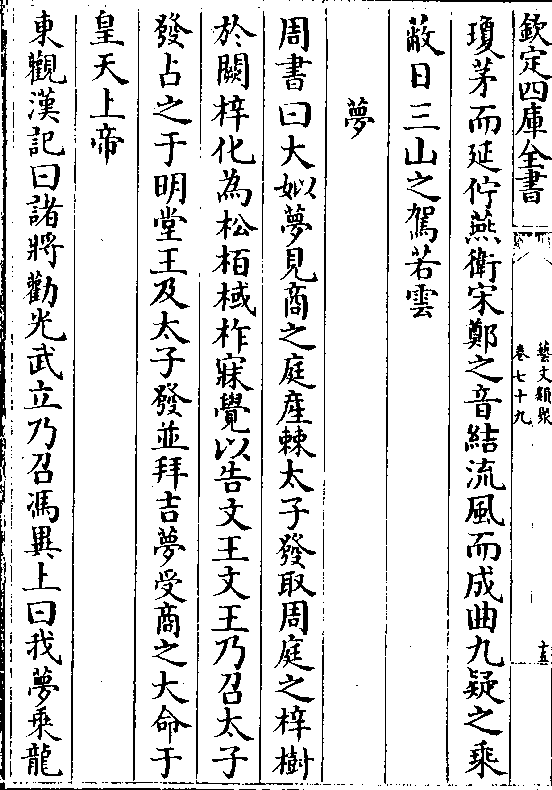 欽定四庫全書
藝文類聚
卷七十九
十五
瓊茅而延佇燕衛宋鄭之音結流風而成曲九疑之乘
蔽日三山之駕若雲
夢
周書曰大姒夢見商之庭產棘太子發取周庭之梓樹
於闕梓化為松栢棫柞寐覺以告文王文王乃召太子
發占之于明堂王及太子發並拜吉夢受商之大命于
皇天上帝
東觀漢記曰諸將勸光武立乃召馮異上曰我夢乘龍